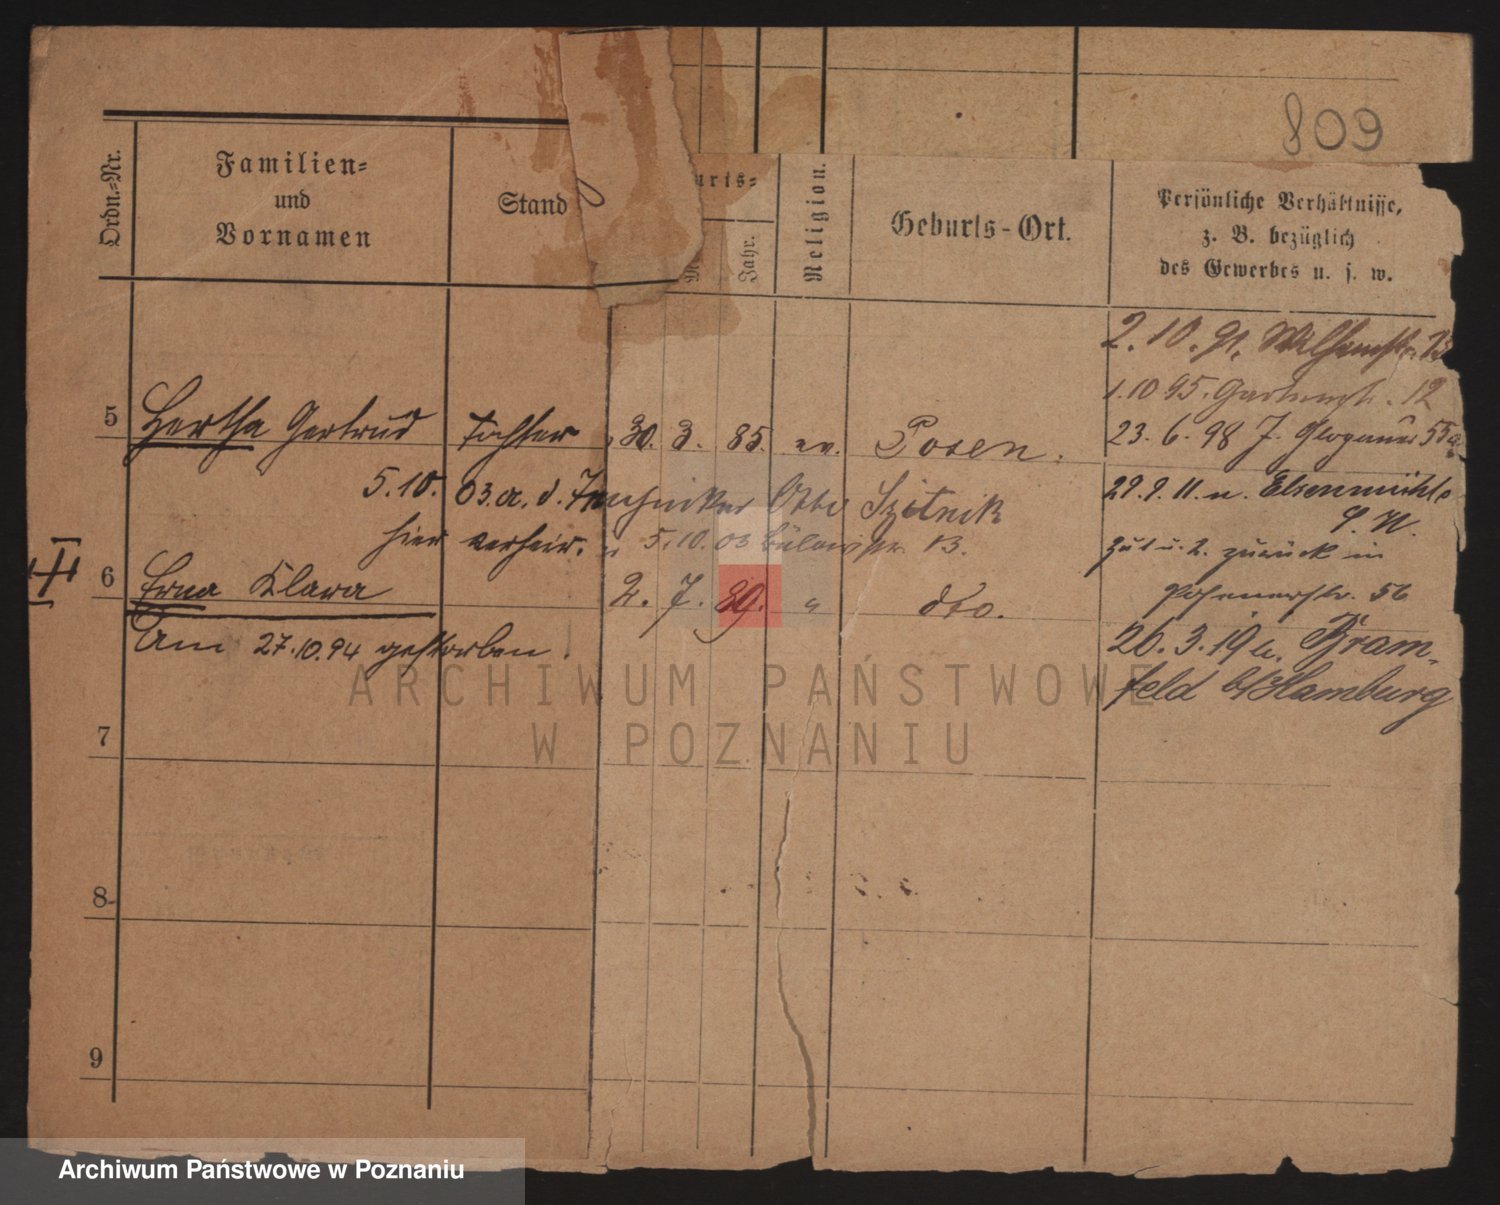 809
Ordn.-Nr.
Familien-
und
Vornamen
Stand
urts-
Jahr.
Religion.
Geburts-Ort.
Persönliche Verhältnisse,
z. B. bezüglich
des Gewerbes u. s. w.
2. 10. 91.
1. 10 95. Gartenstr. 12
5 Hertha Gertrud Tochter 30. 3. 85. ev. Posen.
23. 6. 98 J. Glogauer 55a
5.10. 03. a. d. Techniker Otto Szitnik
hier verheir. 5. 10. 03 Bülowstr. 13.
29. 9. 11. n. Elsenmühle
zurück in
Posenerstr. 56
6 Erna Klara 2. 7. 89. " dto.
Am 27.10.94 gestorben.
26. 3. 19 n. Bram-
feld b/Hamburg
7
8
9
ARCHIWUM PAŃSTWOWE
W POZNANIU
Archiwum Państwowe w Poznaniu